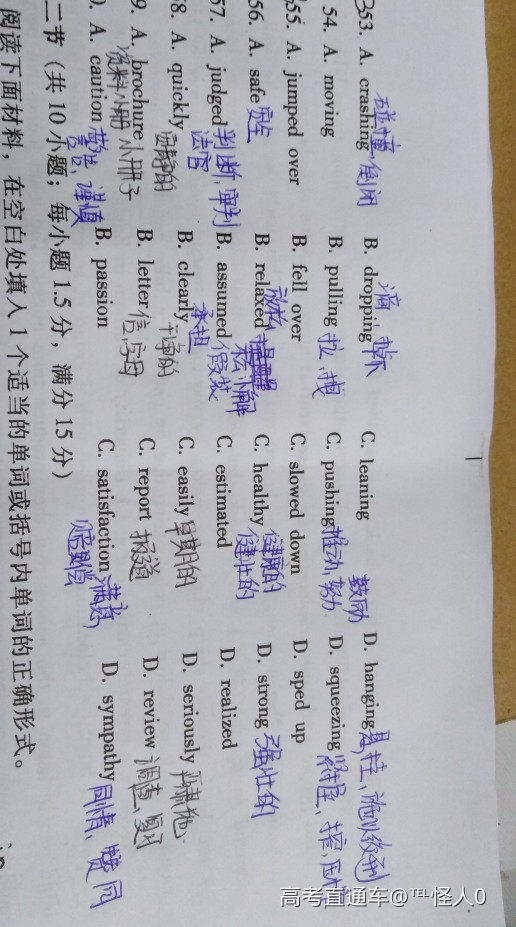 53. A. crashing 碰撞,倒闭 B. dropping 滴,掉下 C. leaning D. hanging 悬挂,施以绞刑
54. A. moving B. pulling 拉,拽 C. pushing 推动,努力 鼓励 D. squeezing 挤,压
55. A. jumped over B. fell over C. slowed down D. sped up
56. A. safe 安全 B. relaxed 放松 C. healthy 健康的 健壮的 D. strong 强壮的
57. A. judged 判断,审判 法官 B. assumed 承担 假装 C. estimated D. realized
58. A. quickly B. clearly 干净的 C. easily 早期的 D. seriously 严肃地
9. A. brochure 资料小册 小册子 B. letter 信,字母 C. report 报道 D. review 调查,复习
0. A. caution 警告,谨慎 B. passion C. satisfaction 满意,赔偿 D. sympathy 同情,赞同
二节(共 10 小题;每小题 1.5 分,满分 15 分)
阅读下面材料,在空白处填入 1 个适当的单词或括号内单词的正确形式。
高考直通车@℡怪人0